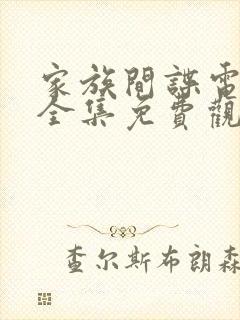 家族間諜電
全集免費觀
查尔斯布朗森